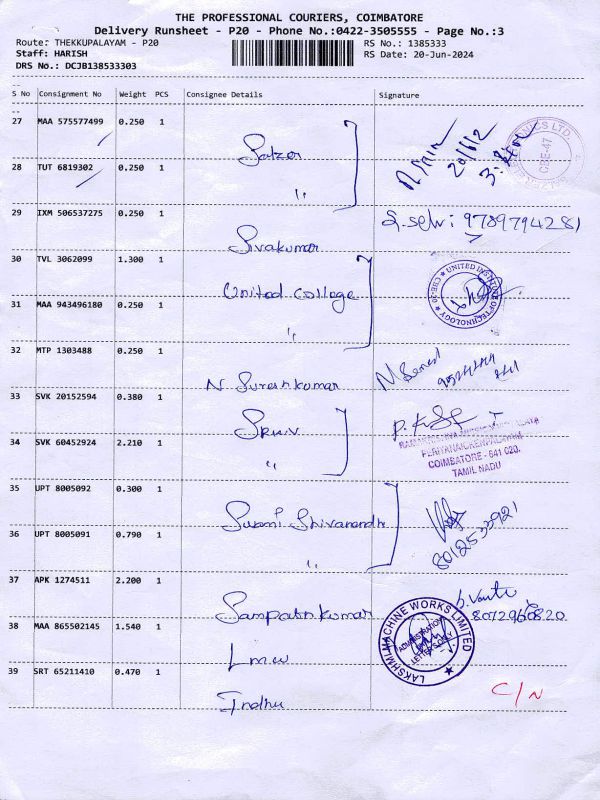 THE PROFESSIONAL COURIERS, COIMBATORE
Delivery Runsheet - P20 - Phone No.:0422-3505555 - Page No.:3
Route: THEKKUPALAYAM - P20 RS No.: 1385333
Staff: HARISH RS Date: 20-Jun-2024
DRS No.: DCJB138533303
S No Consignment No Weight PCS Consignee Details Signature
27 MAA 575577499 0.250 1
28 TUT 6819302 0.250 1
〃
29 IXM 506537275 0.250 1 9789794281
Sivakumar
30 TVL 3062099 1.300 1
United College UNITED INSTITUTE OF TECHNOLOGY CBE-20
31 MAA 943496180 0.250 1
〃
32 MTP 1303488 0.250 1
N. Sureshkumar
33 SVK 20152594 0.380 1
34 SVK 60452924 2.210 1
〃
PERIYANAICKENPALAYAM
COIMBATORE - 641 020.
TAMIL NADU
35 UPT 8005092 0.300 1
Swami Shivanandha
36 UPT 8005091 0.790 1 8012533921
〃
37 APK 1274511 2.200 1
Sampathkumar
38 MAA 865502145 1.540 1
L.m.w LAKSHMI MACHINE WORKS LIMITED ADMINISTRATION LETTERS ONLY
39 SRT 65211410 0.470 1 C/N
Indhu